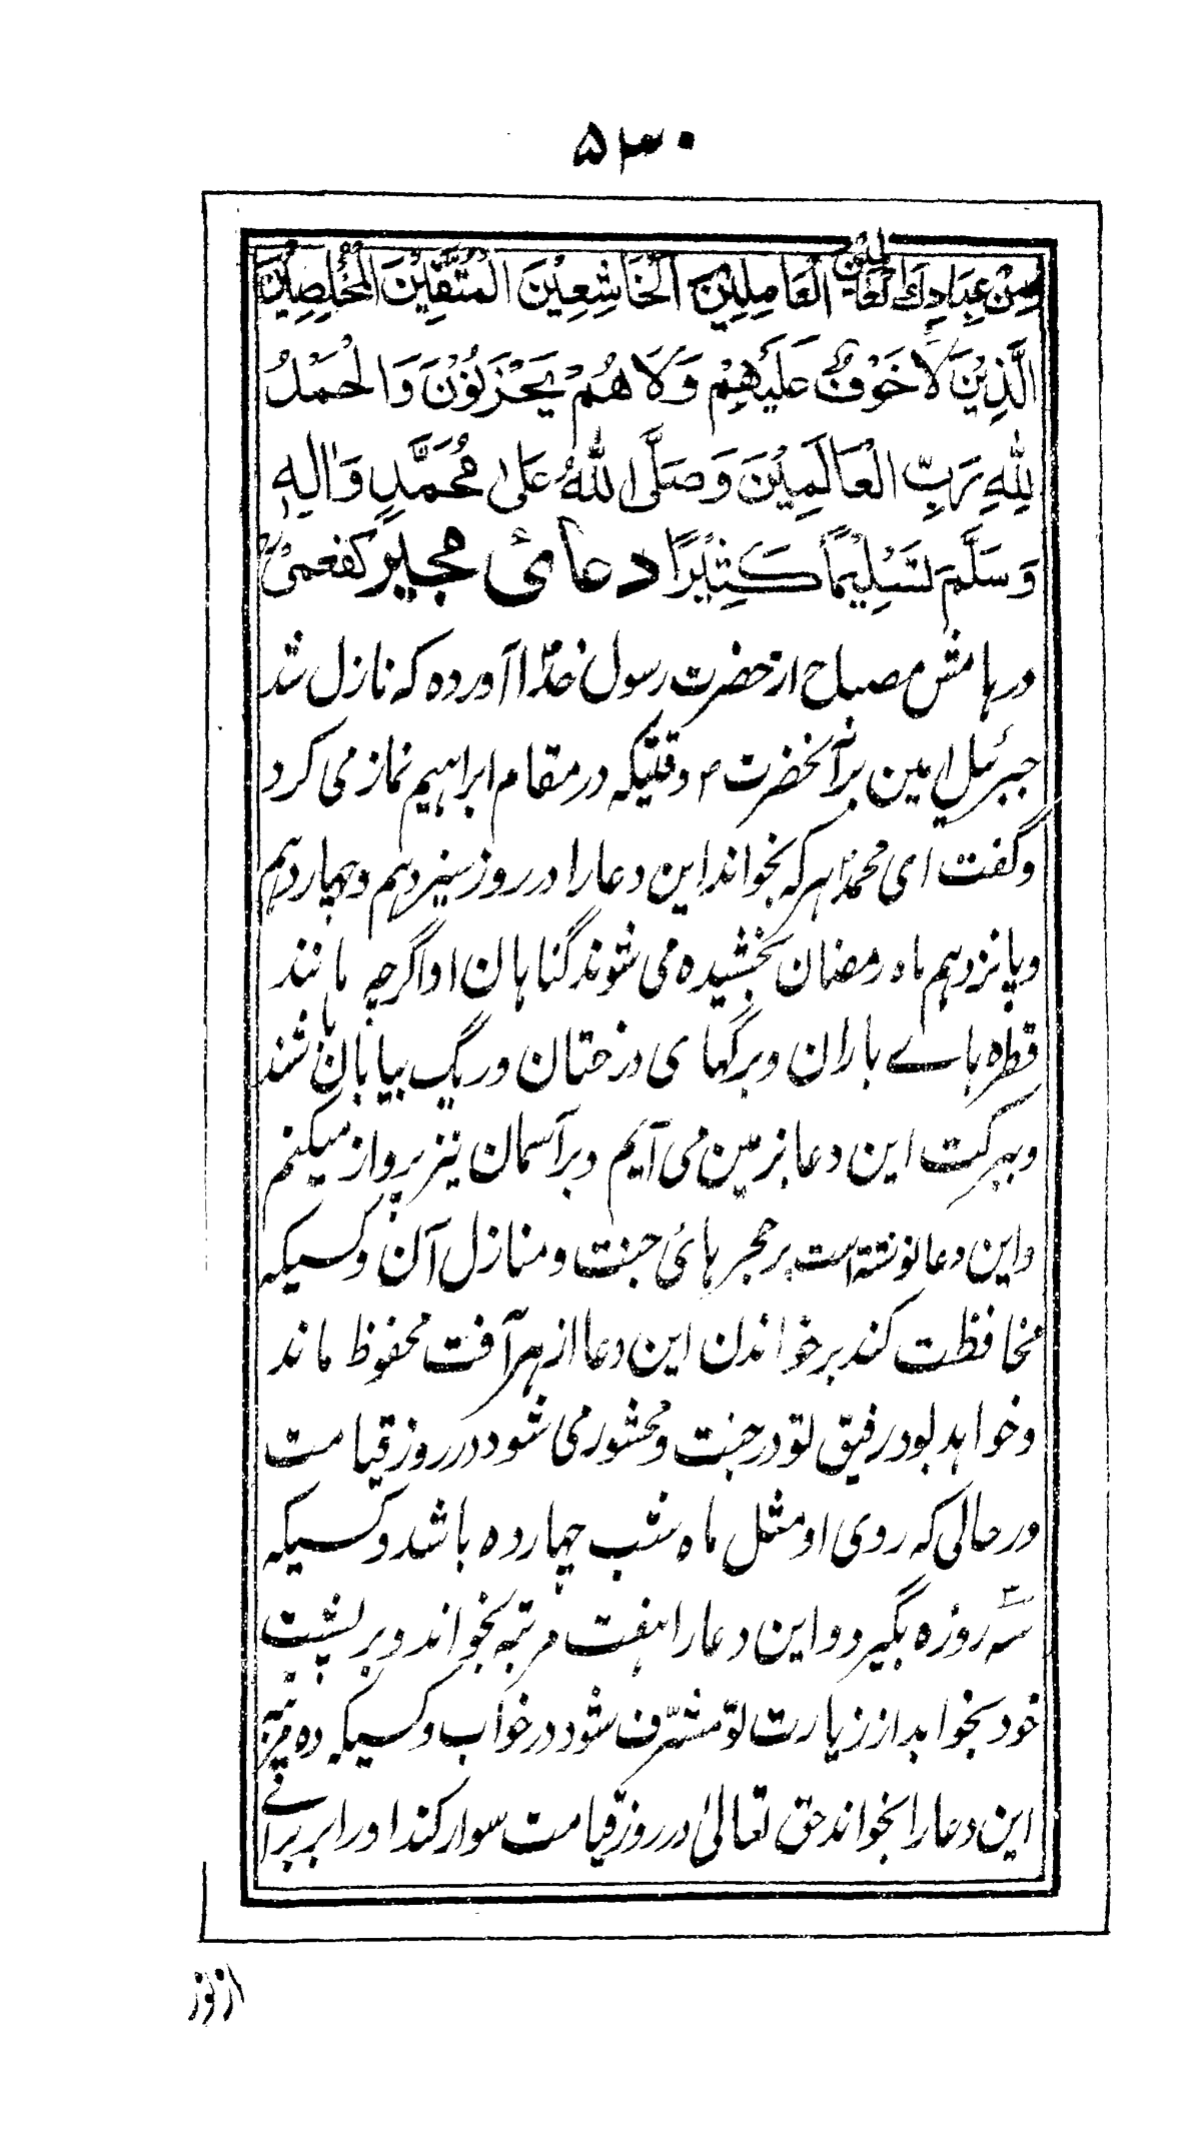 ۵۳۰
مِنْ عِبَادِكَ الْعَالِمِيْنَ الْعَامِلِيْنَ الْخَاشِعِيْنَ الْمُتَّقِيْنَ الْمُخْلِصِيْنَ
الَّذِيْنَ لَا خَوْفٌ عَلَيْهِمْ وَلَا هُمْ يَحْزَنُوْنَ وَالْحَمْدُ
لِلّٰهِ رَبِّ الْعَالَمِيْنَ وَصَلَّى اللّٰهُ عَلٰى مُحَمَّدٍ وَاٰلِهٖ
وَسَلَّمَ تَسْلِيْمًا كَثِيْرًا دعائ مجیر کفعمیؒ
در هامش مصباح از حضرت رسول خداؐ آورده که نازل شد
جبرئیل امین بر آنحضرتؐ وقتیکه در مقام ابراہیم نماز می کرد
وگفت ای محمدؐ هر که بخواند این دعا را در روز سیزدهم وچهاردهم
وپانزدهم ماه رمضان بخشیده می شوند گناهان او اگرچه مانند
قطره ہاے باران وبرگهای درختان وریگ بیابان باشند
وببرکت این دعا بزمین می آیم وبر آسمان نیز پرواز میکنم
واین دعا نوشته است بر حجر ہائ جنت ومنازل آن وکسیکه
محافظت کند بر خواندن این دعا از هر آفت محفوظ ماند
وخواهد بود رفیق تو در جنت ومحشور می شود در روز قیامت
در حالی که روی او مثل ماه شب چهارده باشد وکسیکه
سه روزه بگیرد واین دعا را هفت مرتبه بخواند وبر پشت
خود بخوابد از زیارت تو مشرّف شود در خواب وکسیکه ده مرتبه
این دعا را بخواند حق تعالیٰ در روز قیامت سوار کند او را بر براقے
از نور